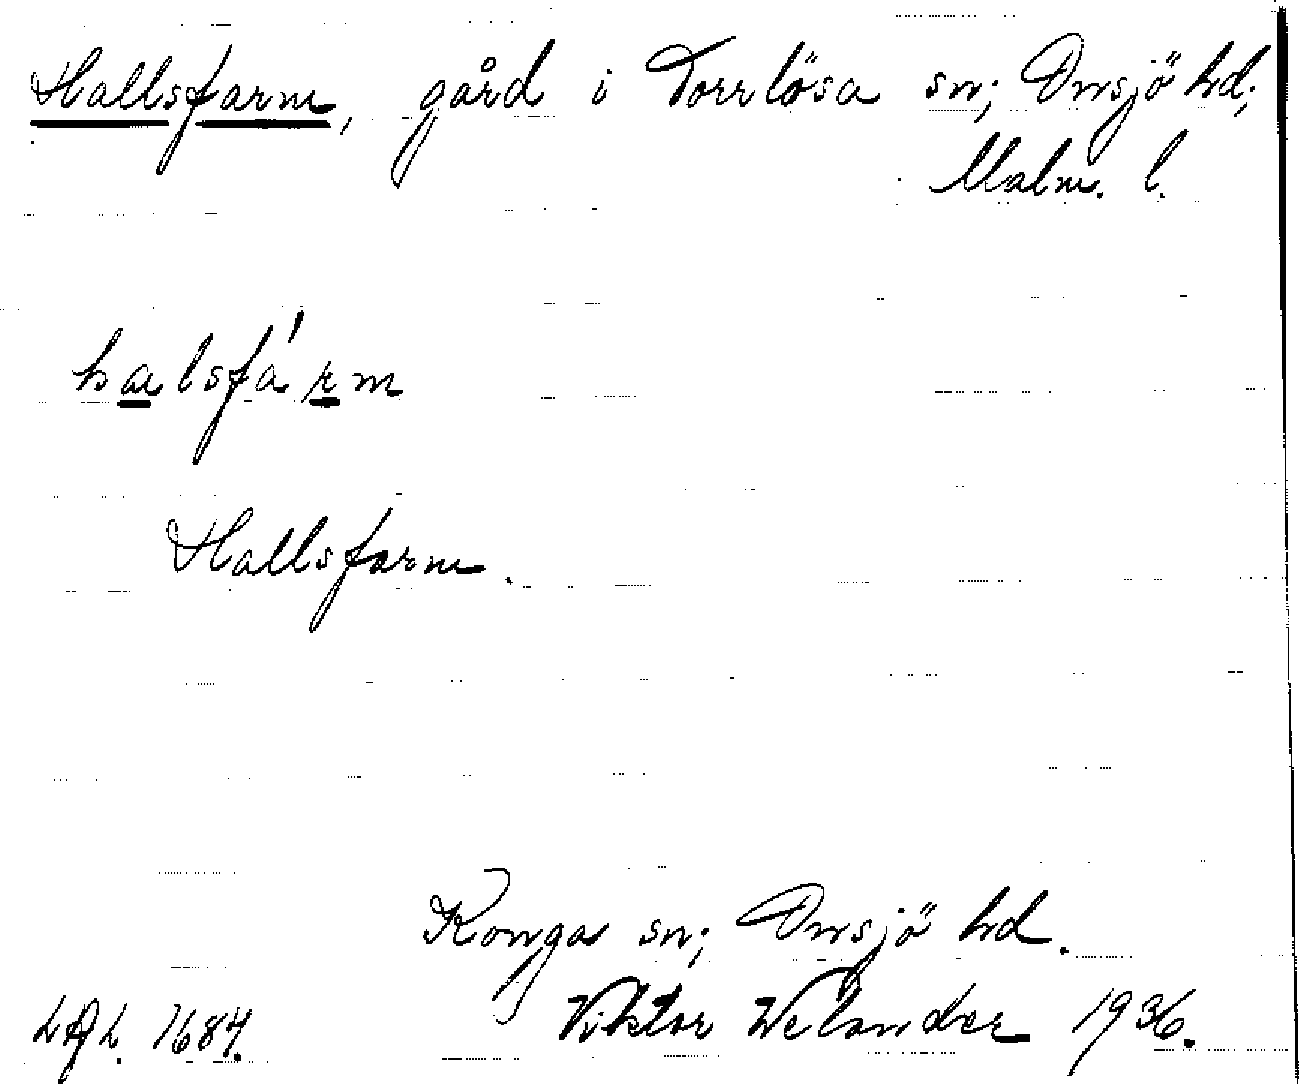 Hallsfarm, gård i Torrlösa sn; Onsjö hd;
Malm. l.
halsfa'rm
Hallsfarm.
Konga sn; Onsjö hd.
LAL. 1684. Viktor Welander 1936.